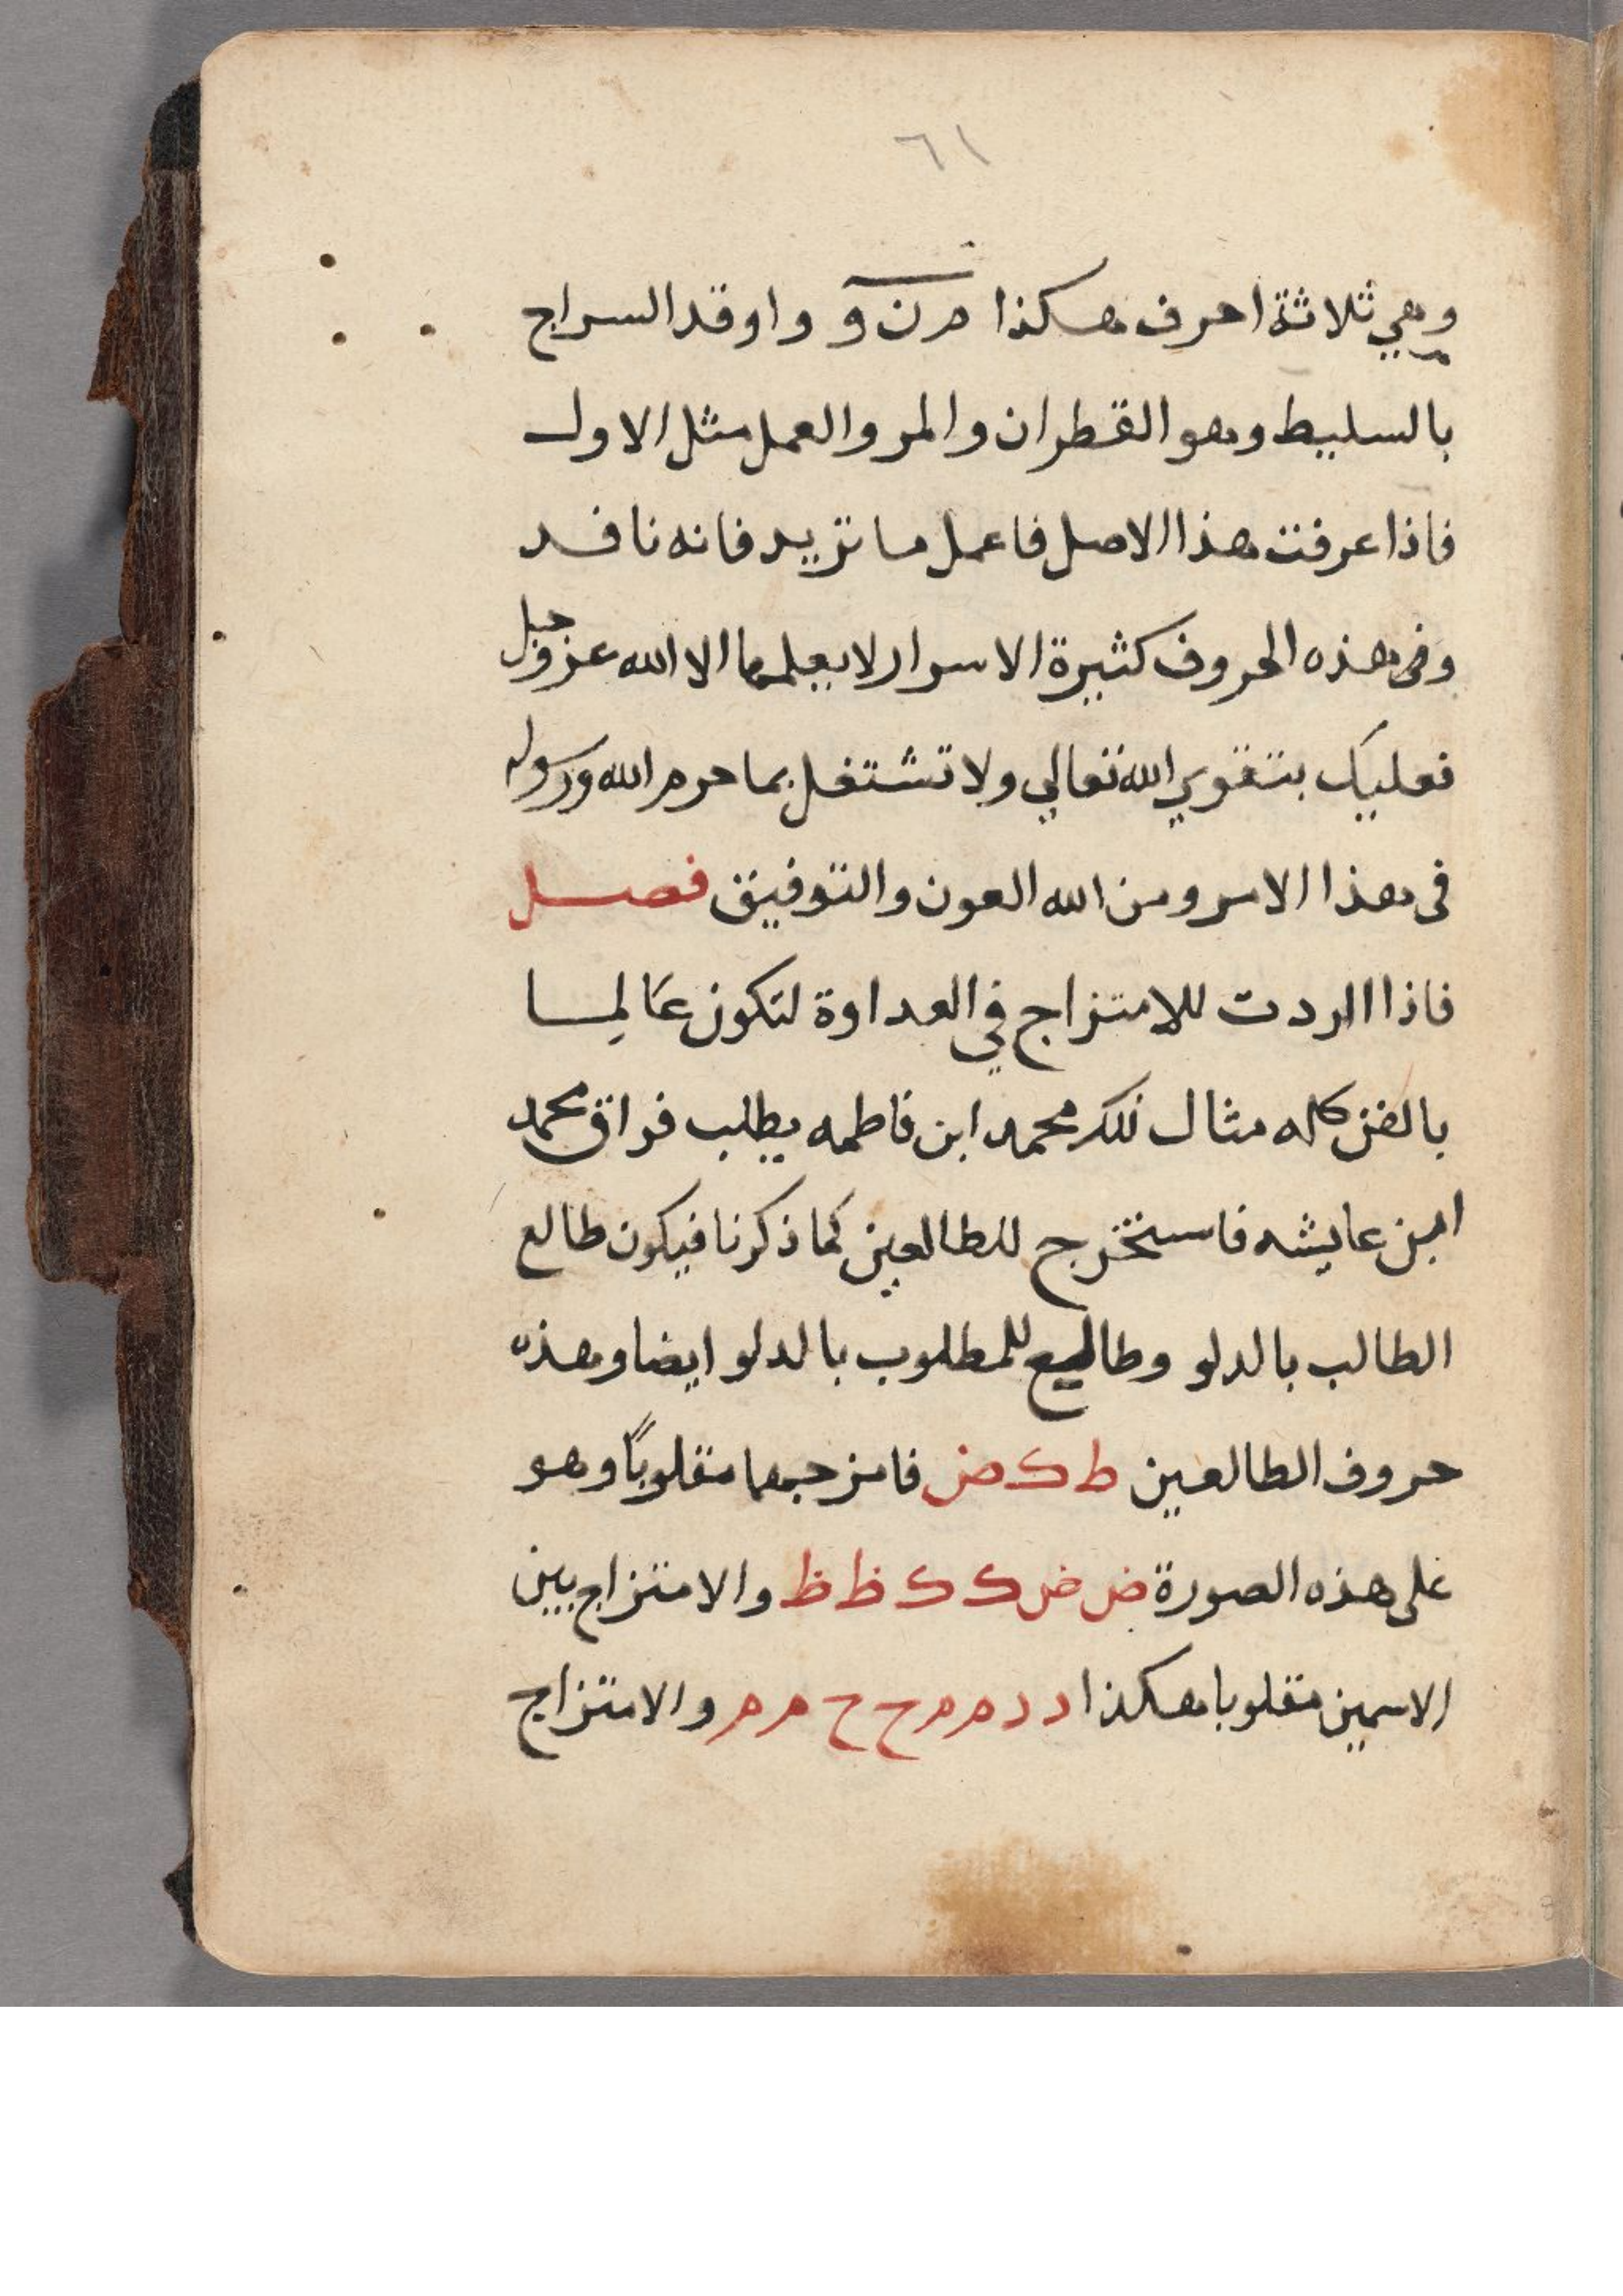 ٦١
وهي ثلاثة احرف هكذا م ن و واوقد السراج
بالسليط وهو القطران والمر والعمل مثل الاول
فاذا عرفت هذا الاصل فاعمل ما تريد فانه نافد
وفى هذه الحروف كثيرة الاسرار لا يعلمها الا الله عز وجل
فعليك بتقوي الله تعالي ولا تشتغل بما حرم الله ورسوله
فى هذا الامر ومن الله العون والتوفيق فصل
فاذا اردت للامتزاج في العداوة لتكون عَالِما
بالفن كله مثال ذلك محمد ابن فاطمه يطلب فراق محمد
ابن عايشه فاستخرج للطالعين كما ذكرنا فيكون طالع
الطالب بالدلو وطالع للمطلوب بالدلو ايضا وهذه
حروف الطالعين ط ك ض فامزجها مقلوباً وهو
على هذه الصورة ض ض ك ك ظ ظ والامتزاج بين
الاسمين مقلوبا هكذا د د م م ح ح م م والامتزاج